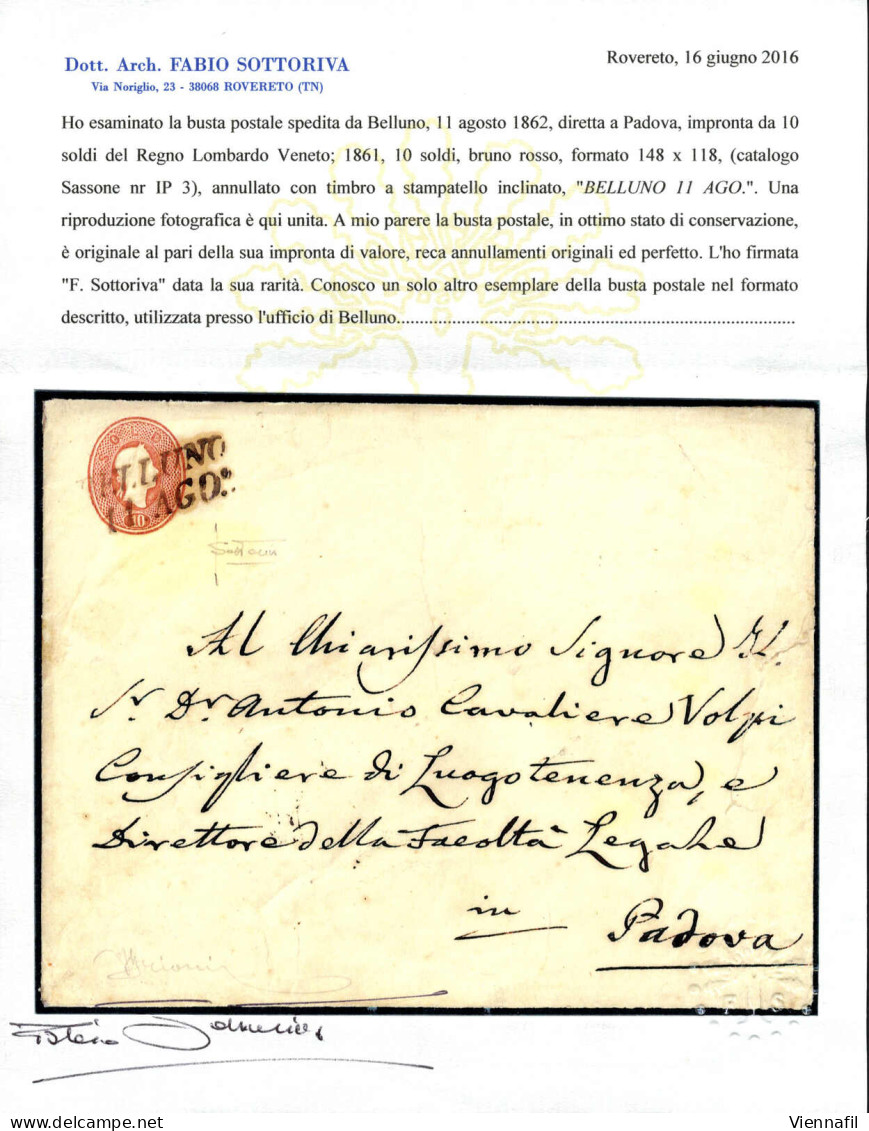 Dott. Arch. FABIO SOTTORIVA
Via Noriglio, 23 - 38068 ROVERETO (TN)
Rovereto, 16 giugno 2016
Ho esaminato la busta postale spedita da Belluno, 11 agosto 1862, diretta a Padova, impronta da 10
soldi del Regno Lombardo Veneto; 1861, 10 soldi, bruno rosso, formato 148 x 118, (catalogo
Sassone nr IP 3), annullato con timbro a stampatello inclinato, "BELLUNO 11 AGO.". Una
riproduzione fotografica è qui unita. A mio parere la busta postale, in ottimo stato di conservazione,
è originale al pari della sua impronta di valore, reca annullamenti originali ed perfetto. L'ho firmata
"F. Sottoriva" data la sua rarità. Conosco un solo altro esemplare della busta postale nel formato
descritto, utilizzata presso l'ufficio di Belluno....................................................................................
BELLUNO
11 AGO.
10
Al Chiarissimo Signore Il
Sr. Dr. Antonio Cavaliere Volpi
Consigliere di Luogotenenza, e
Direttore della Facoltà Legale
in
Padova
Viennafil